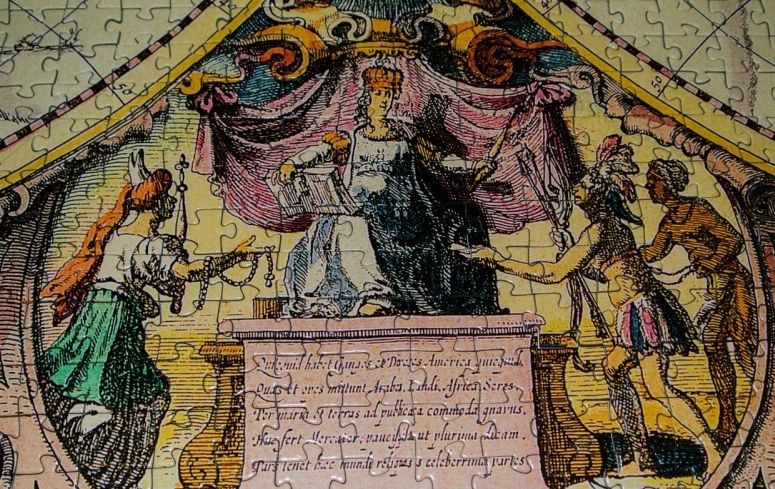 Quicquid habet Ganges et Dives America quicquid,
Quas et opes mittunt Araba, Indi, Africa Seres,
Per maria et terras ad publica commoda gnarus.
Huc fert Mercator, paucis ut plurima dicam.
Pars tenet hæc mundi celeberrima partes